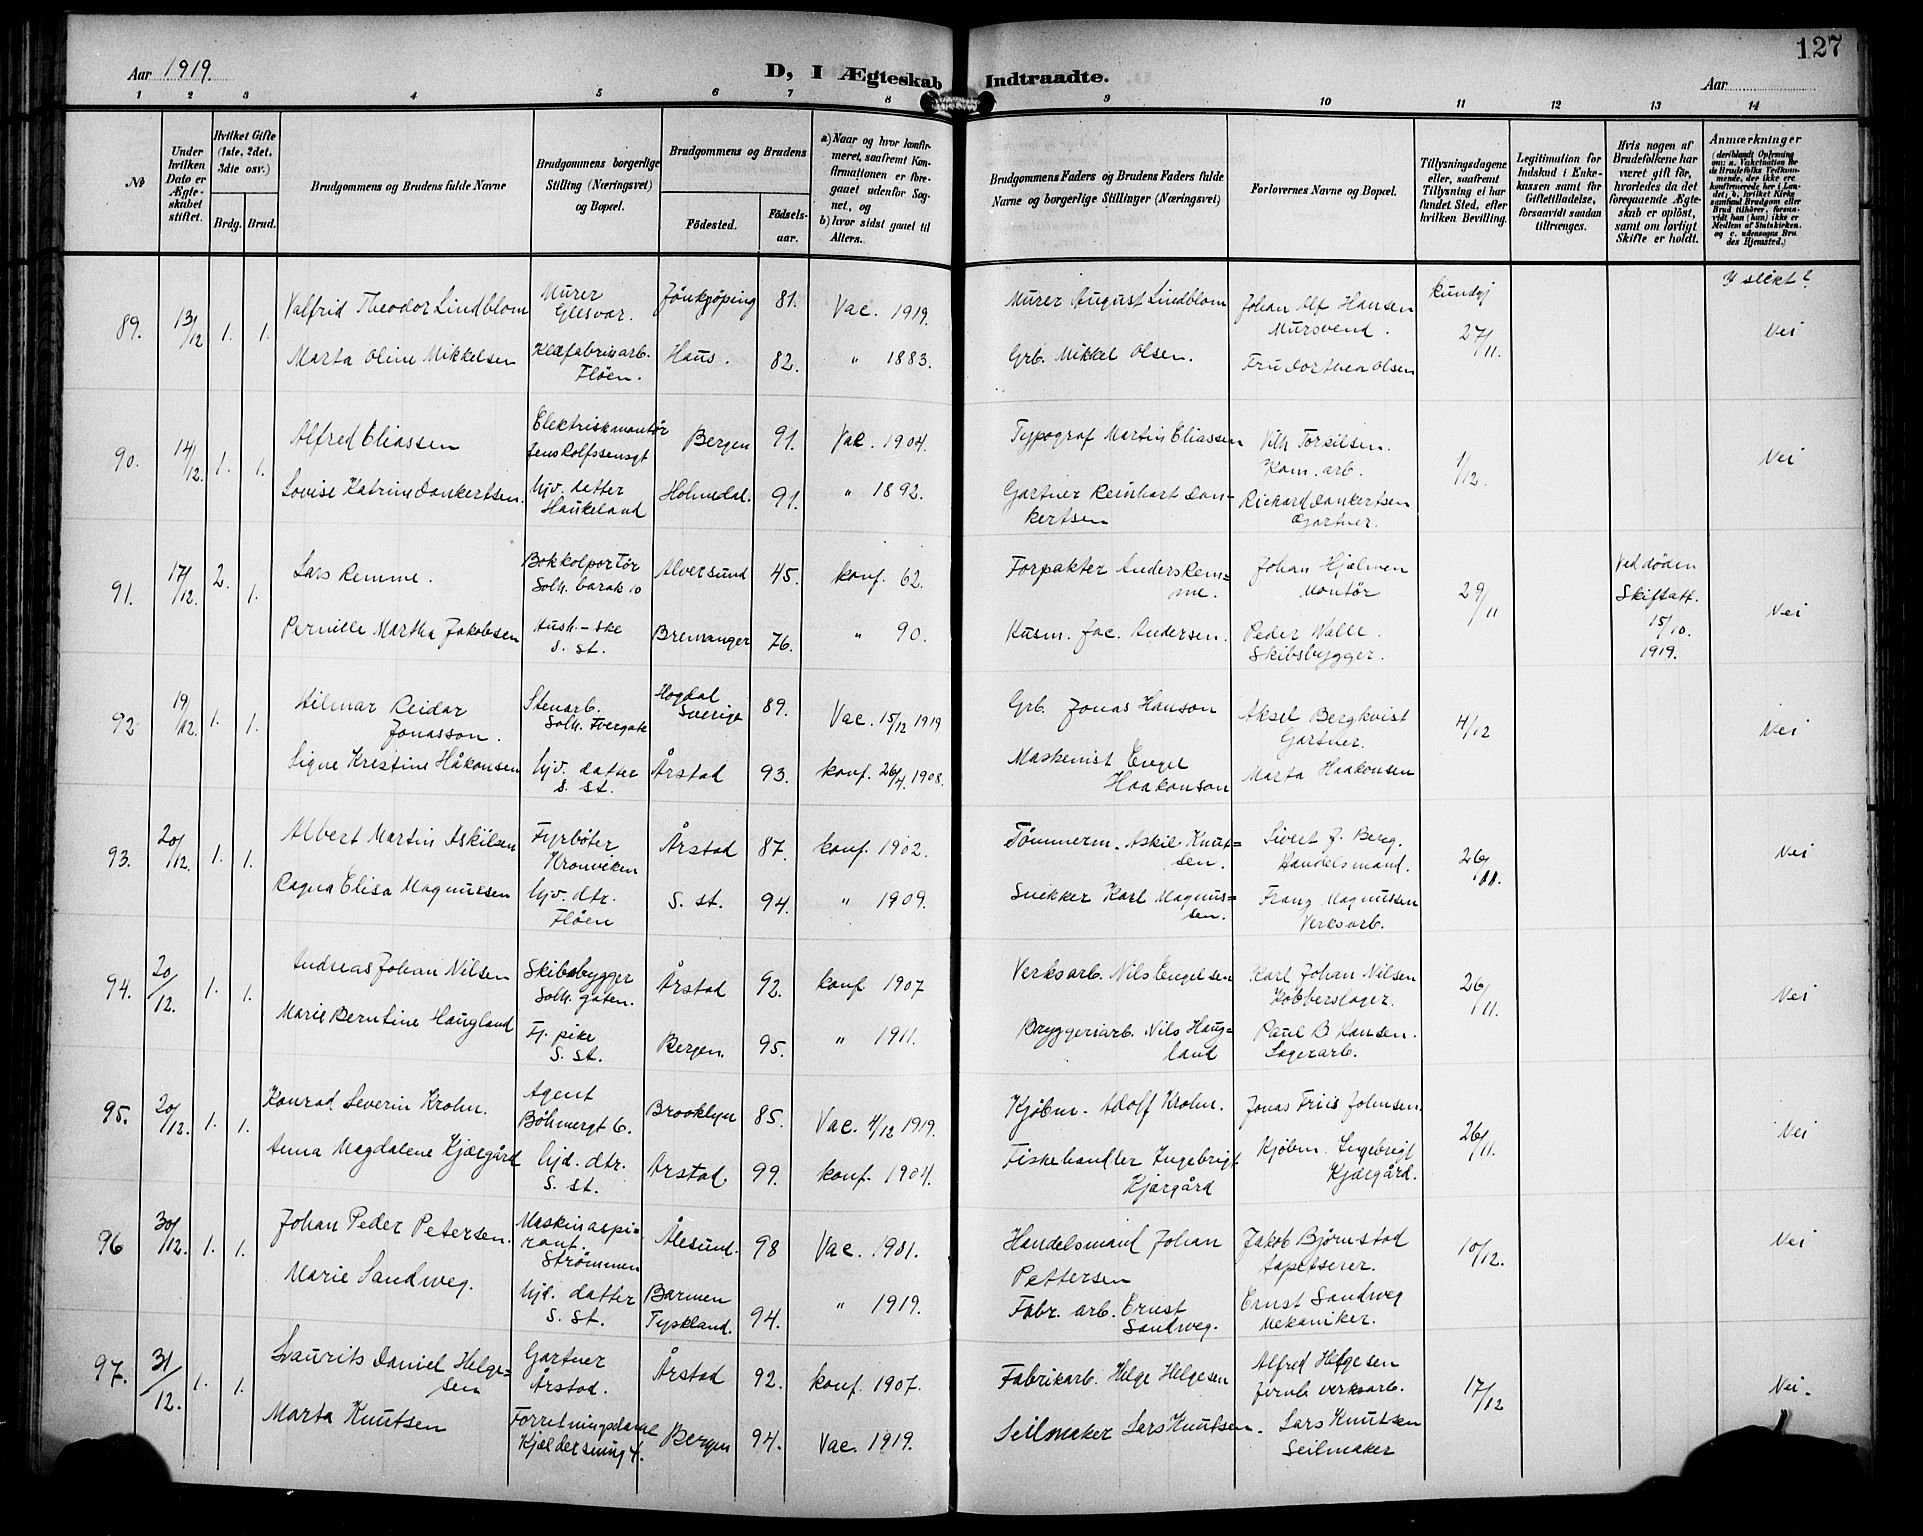 127
Aar 1919.
D, I Ægteskab Indtraadte.
Aar
1 2 3 4 5 6 7 8 9 10 11 12 13 14
No
Under hvilken Dato er Ægteskabet stiftet.
Hvilket Gifte (1ste, 2det, 3die osv.)
Brdg. Brud.
Brudgommens og Brudens fulde Navne
Brudgommens borgerlige Stilling (Næringsvei) og Bopæl.
Brudgommens og Brudens
Fødested.
Fødselsaar.
a) Naar og hvor konfirmeret, saafremt Konfirmationen er foregaaet udenfor Sognet, og
b) hvor sidst gaaet til Alters.
Brudgommens Faders og Brudens Faders fulde Navne og borgerlige Stillinger (Næringsvei)
Forlovernes Navne og Bopæl.
Tillysningsdagene eller, saafremt Tillysning ei har fundet Sted, efter hvilken Bevilling.
Legitimation for Indskud i Enkekassen samt for Giftetilladelse, forsaavidt saadan tiltrænges.
Hvis nogen af Brudefolkene har været gift før, hvorledes da det foregaaende Ægteskab er opløst, samt om lovligt Skifte er holdt.
Anmærkninger
89. 13/12 1. 1. Valfrid Theodor Lindblom Murer Glesvær. Jönkjöping 81. Vac. 1919. Murer August Lindblom Johan Alf Hansen Mursvend. kundgj 27/11. I slekt? Nei
Marta Oline Mikkelsen Fløen. Haus. 82. " 1883. Grb. Mikkel Olsen. Fru Dorthea Olsen
90. 14/12. 1. 1. Alfred Eliassen Elektriskmontør Jens Rolfssensgt Bergen 91. Vac. 1904. Typograf Martin Eliassen Vilh Torkilsen. Kom. arb. 1/12. Nei
Lovise Katrine Dankertsen. hjv. datter Haukeland Holmedal. 91. " 1892. Gartner Reinhart Dankertsen Richard Dankertsen Gartner.
91. 17/12. 2. 1. Lars Remme. Bokkolportør Solh. barak 10 Alversund 45. konf. 62. Forpakter Anders Remme. Johan Hjelmen Montør 29/11 Ved døden Skiftatt. 15/10. 1919. Nei
Pernille Martha Jakobsen s. st. Bremanger 76. " 90. Husm. Jac. Andersen. Peder Walle. Skibsbygger.
92 19/12. 1. 1. Hilmar Reidar Jonasson. Stenarb. Hogdal Sverige 89. Vac. 15/12 1919 Grb. Jonas Hanson Aksel Bergkvist Gartner. 4/12 Nei
Signe Kristine Håkonsen hjv. datter s. st. Årstad 93. konf. 26/4. 1908. Maskenist Engel Haakonson Marta Haakonsen
93. 20/12. 1. 1. Albert Martin Askilsen Fyrbøter Kronviken Årstad 87. konf. 1902. Tømmerm. Askil Knutsen. Sivert J. Berg. Handelsmand. 26/11. Nei
Ragna Elisa Magnussen hjv. dtr. Fløen S. st. 94. " 1909. Snekker Karl Magnussen. Franz Magnussen Verksarb.
94. 20/12. 1. 1. Andreas Johan Nilsen Skibsbygger Solh. gaten. Årstad 92. konf 1907 Verksarb. Nils Engelsen Karl Johan Nilsen Kobberslager. 26/11. Nei
Marie Berntine Haugland Fj. pike S. st. Bergen. 95. " 1911. Bryggeriarb. Nils Haugland Paul B Hansen. Lagerarb.
95. 20/12. 1. 1. Konrad Severin Krohn. Agent Böhmergt 6. Brooklyn 85. Vac. 4/12 1919. Kjøbm. Adolf Krohn. Jonas Friis Johnsen. 26/11. Nei
Anna Magdalene Kjærgård hjd. dtr. S. st. Årstad. 99. konf. 1904. Fiskehandler Ingebrigt Kjærgård Kjøbm. Ingebrigt Kjærgård.
96 30/12. 1. 1. Johan Peder Petersen. Maskinaspirant. Strømmen Ålesund. 98 Vac. 1901. Handelsmand Johan Pettersen Jakob Bjørnstad tapetserer. 10/12. Nei
Marie Sandweg. hjd. datter S. st. Barmen Tyskland. 94. " 1919. Fabr. arb. Ernst Sandweg. Ernst Sandweg Mekaniker.
97. 31/12. 1. 1. Laurits Daniel Helgesen Gartner Årstad. Årstad 92. konf. 1907. Fabrikarb. Helge Helgesen Alfred Helgesen Jernb verksarb. 17/12 Nei.
Marta Knutsen Forretningsdame Bergen 94. Vac. 1919. Seilmaker Lars Knutsen. Lars Knutsen Seilmaker